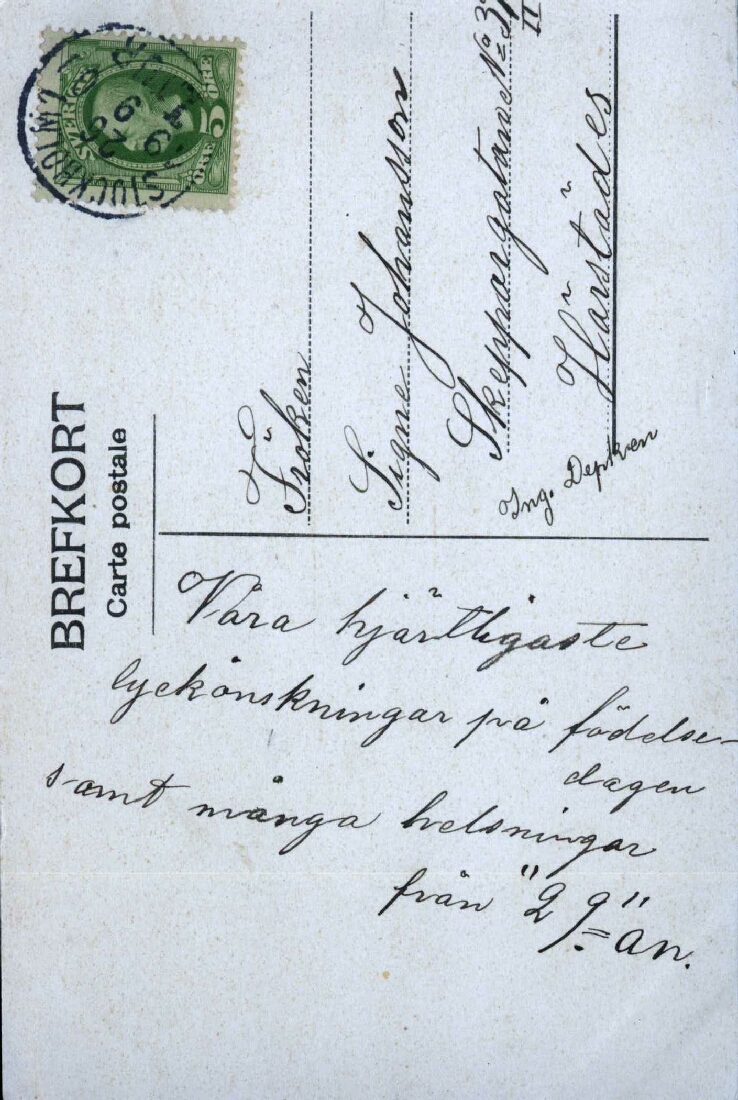 BREFKORT
Carte postale
SVERIGE
5
ÖRE
ÖRE
STOCKHOLM
Fröken
Signe Johansson
Skepparegatan No 37
II
Härstädes
Ing. Depken
Våra hjärtligaste
lyckönskningar på födelse-
dagen
samt många helsningar
från "29"=an.